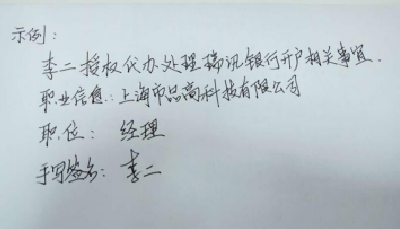 示例：
李二授权代办处理瑞讯银行开户相关事宜。
职业信息：上海市品高科技有限公司
职位：经理
手写签名：李二